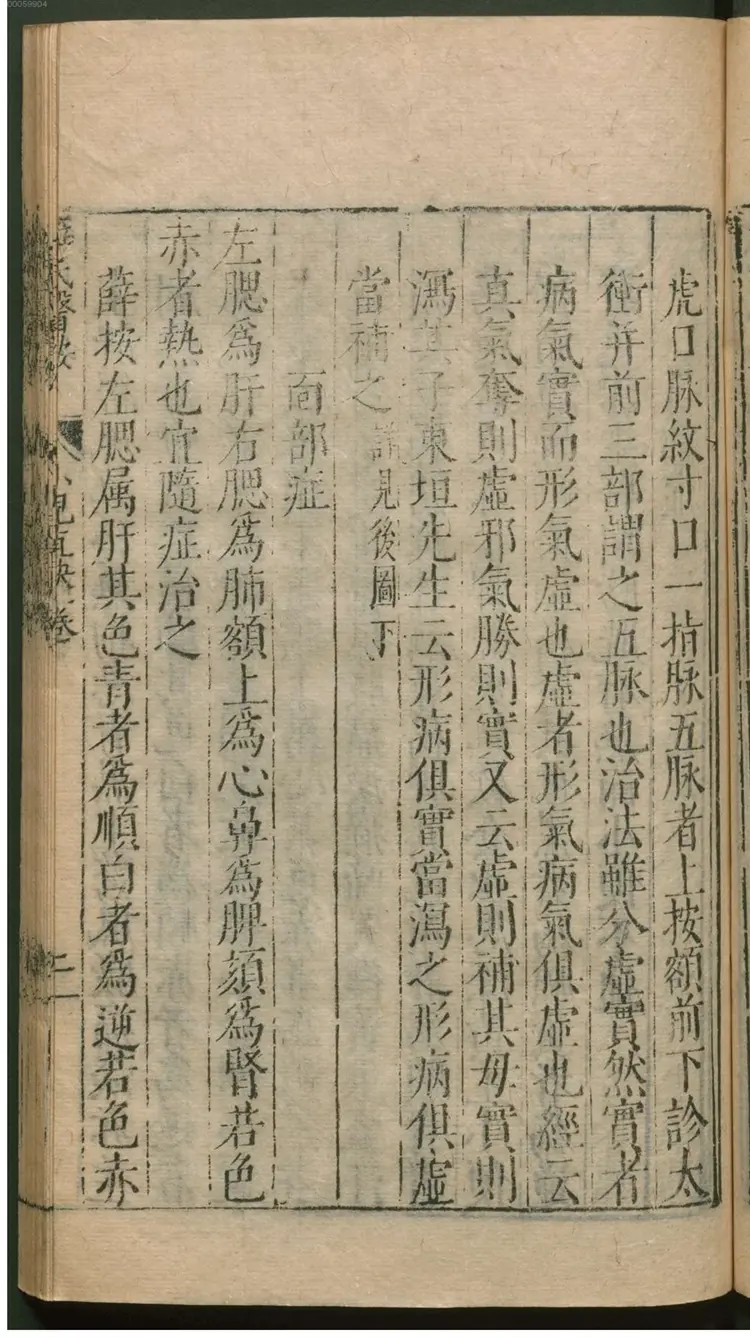 虎口脉紋寸口一指脈五脉者上按額前下診太
衝并前三部謂之五脉也治法雖分虛實然實者
病氣實而形氣虛也虛者形氣病氣俱虛也經云
真氣奪則虛邪氣勝則實又云虛則補其母實則
瀉其子東垣先生云形病俱實當瀉之形病俱虛
當補之詳見後圖下
面部症
左腮爲肝右腮爲肺額上爲心鼻爲脾頦爲腎若色
赤者熱也宜隨症治之
薛按左腮属肝其色青者爲順白者爲逆若色赤
氏醫按 卷
二
00059904